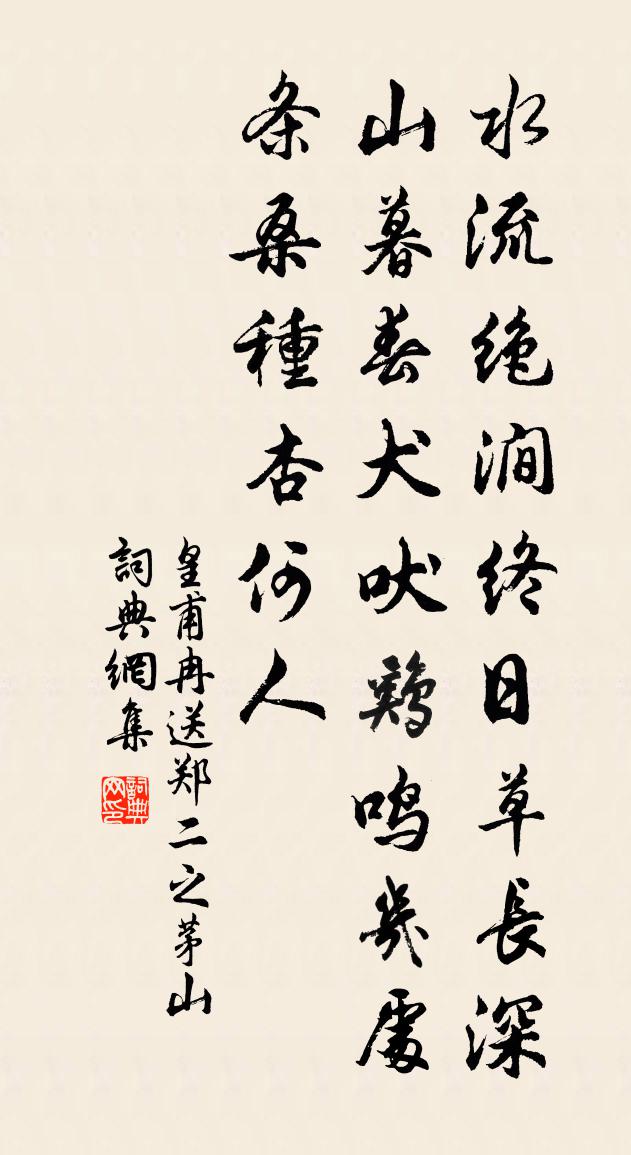 水流绝涧终日草長深
山暮春犬吠鷄鸣幾處
条桑種杏何人
皇甫冉送郑二之茅山
詞典網集
詞典网印